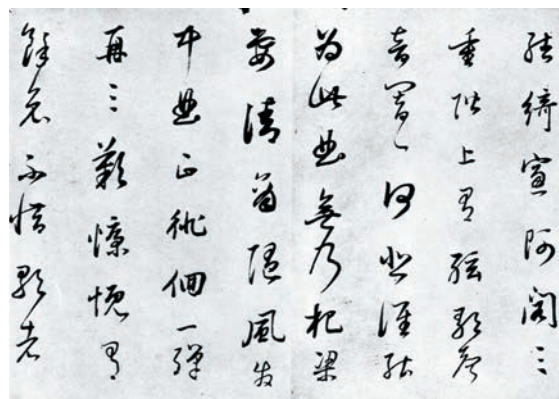 結綺窗阿閣三
重階上有絃歌聲
音響一何悲誰能
為此曲無乃杞梁
妻清商隨風發
中曲正徘徊一彈
再三歎慷慨有
餘哀不惜歌者